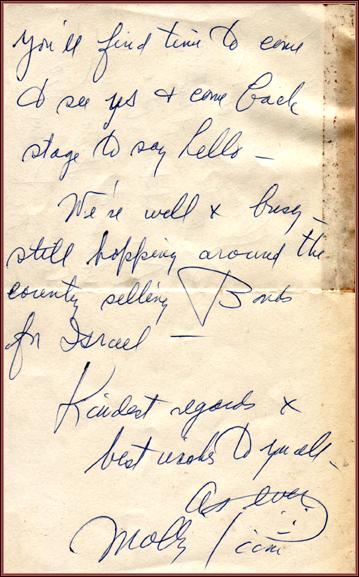 you'll find time to come
to see us & come back
stage to say hello —
We're well & busy —
still hopping around the
country selling Bonds
for Israel —
Kindest regards &
best wishes to you all —
As ever
Molly Picon